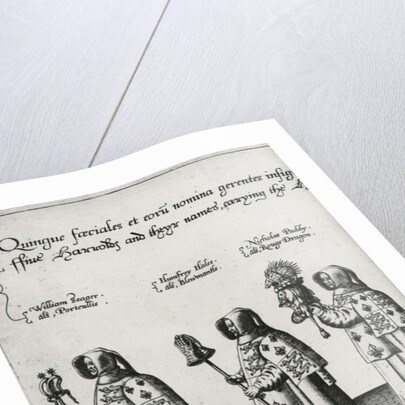 Quinque fæciales et eorū nomina gerentes insig
ffiue Harrowlds and theyr names, carying the
William Seager.
als, Portcullis
Humfrey Hales.
als, Blewmantle.
Nicholas Paddy.
als, Rouge Dragon.